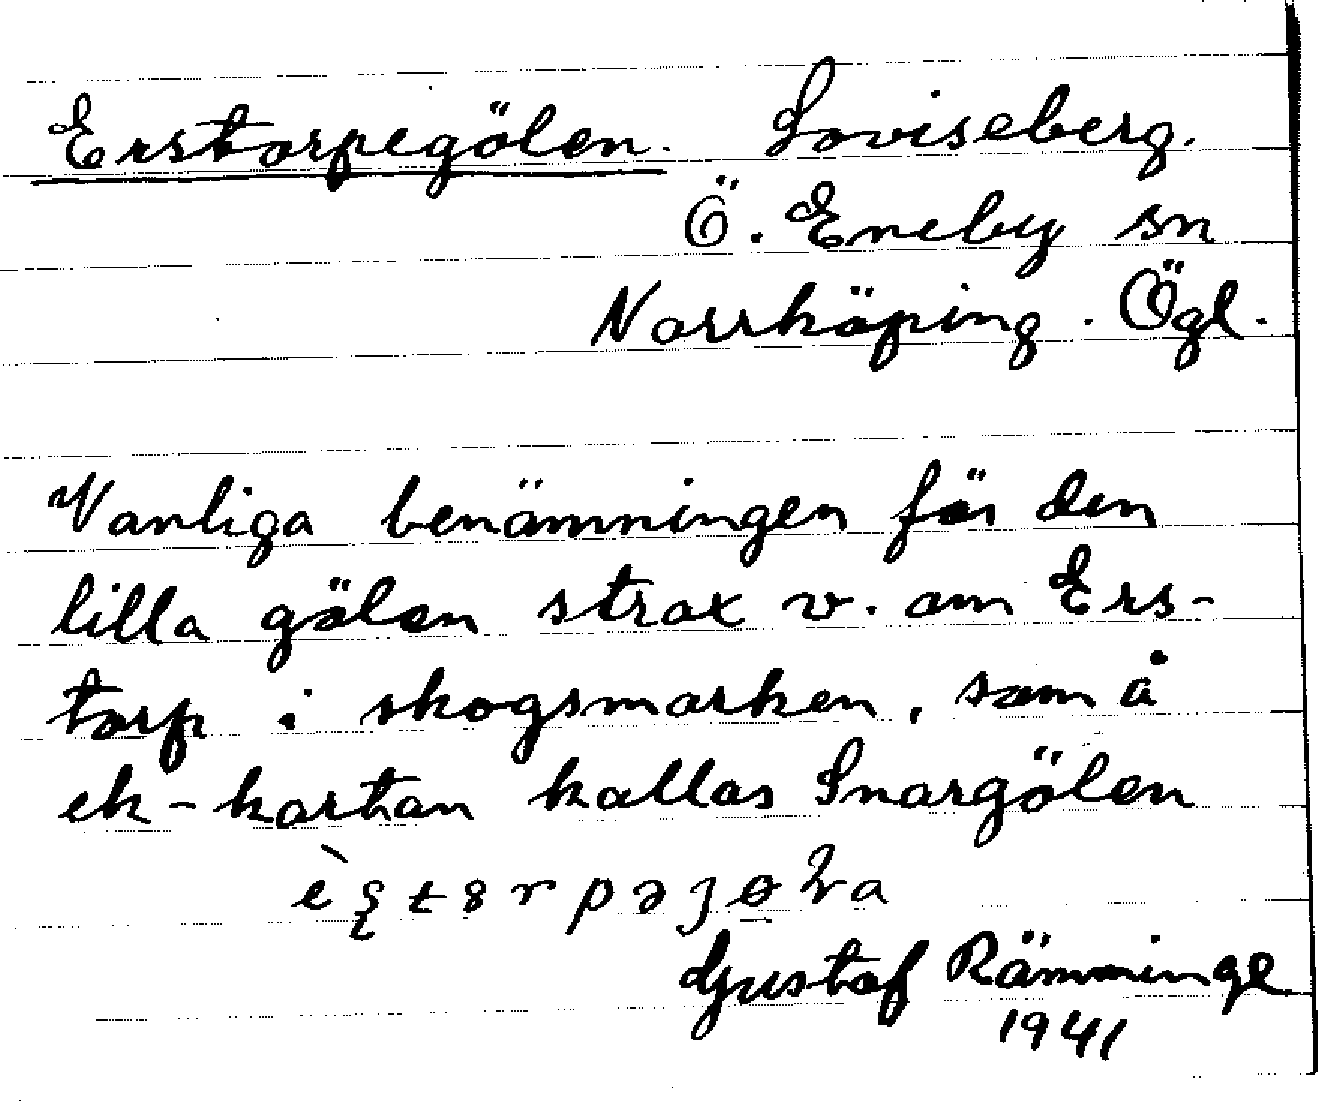 Erstorpegölen. Loviseberg.
Ö. Eneby sn
Norrköping. Ögl.
Vanliga benämningen för den
lilla gölen strax v. om Ers-
torp i skogsmarken, som å
ek-kartan kallas Snargölen
Gustaf Rämninge
1941